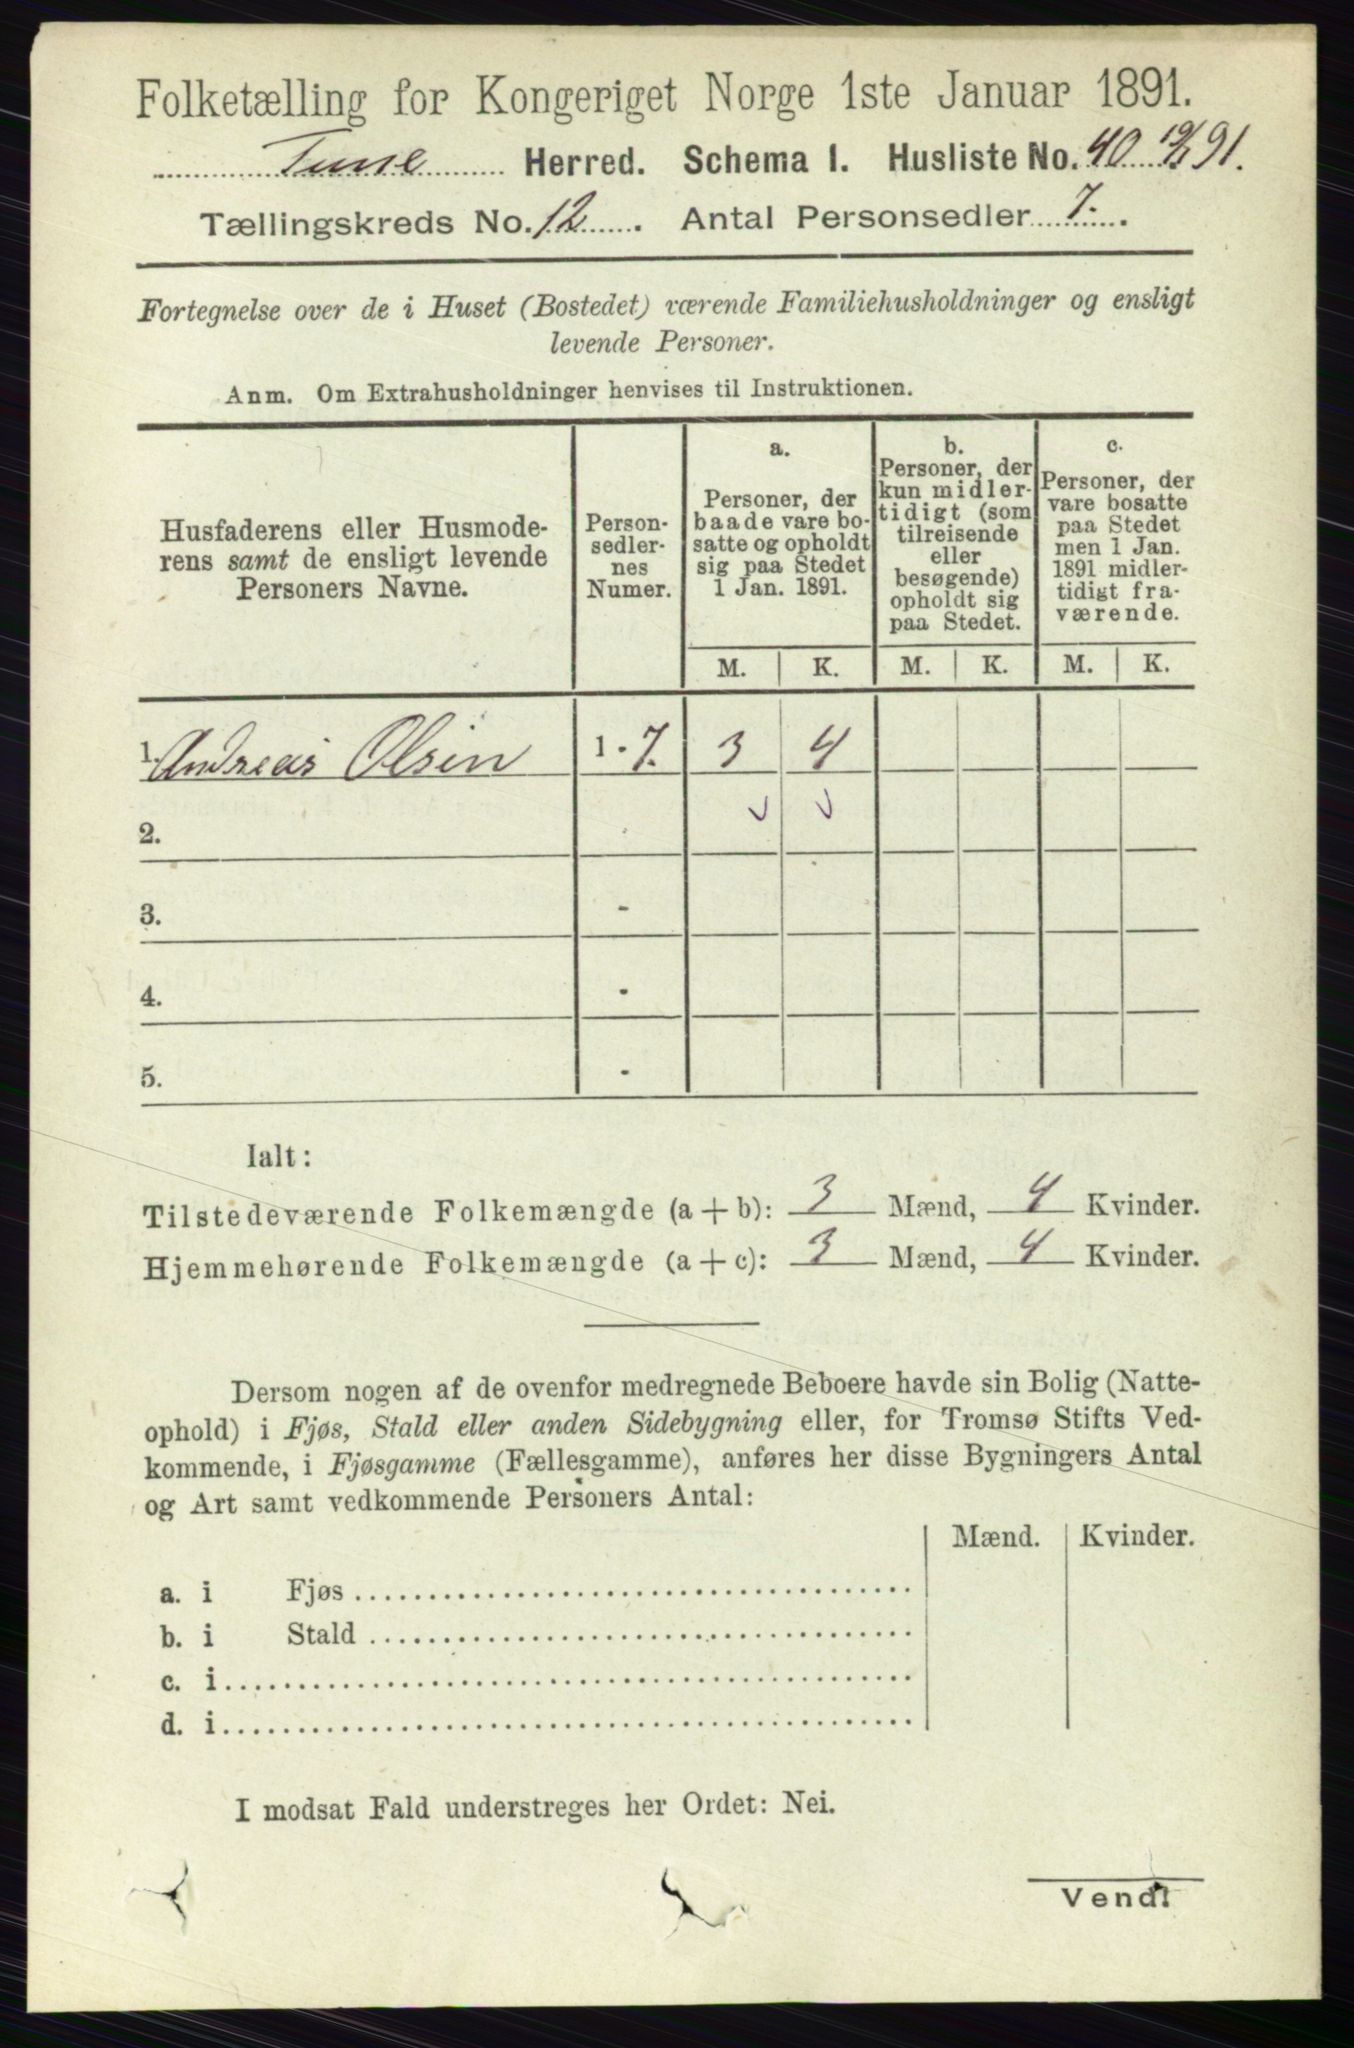 Folketælling for Kongeriget Norge 1ste Januar 1891.
Tune Herred. Schema 1. Husliste No. 40 91.
Tællingskreds No. 12. Antal Personsedler 7.
Fortegnelse over de i Huset (Bostedet) værende Familiehusholdninger og ensligt
levende Personer.
Anm. Om Extrahusholdninger henvises til Instruktionen.
Husfaderens eller Husmode-
rens samt de ensligt levende
Personers Navne.
Person-
sedler-
nes
Numer.
a.
Personer, der
baade vare bo-
satte og opholdt
sig paa Stedet
1 Jan. 1891.
b.
Personer, der
kun midler-
tidigt (som
tilreisende
eller
besøgende)
opholdt sig
paa Stedet.
c.
Personer, der
vare bosatte
paa Stedet
men 1 Jan.
1891 midler-
tidigt fra-
værende.
M. K. M. K. M. K.
1. Andreas Olsen 1 - 7. 3 4
2.
3. -
4. -
5. -
Ialt:
Tilstedeværende Folkemængde (a + b): 3 Mænd, 4 Kvinder.
Hjemmehørende Folkemængde (a + c): 3 Mænd, 4 Kvinder.
Dersom nogen af de ovenfor medregnede Beboere havde sin Bolig (Natte-
ophold) i Fjøs, Stald eller anden Sidebygning eller, for Tromsø Stifts Ved-
kommende, i Fjøsgamme (Fællesgamme), anføres her disse Bygningers Antal
og Art samt vedkommende Personers Antal:
Mænd. Kvinder.
a. i Fjøs
b. i Stald
c. i
d. i
I modsat Fald understreges her Ordet: Nei.
Vend!